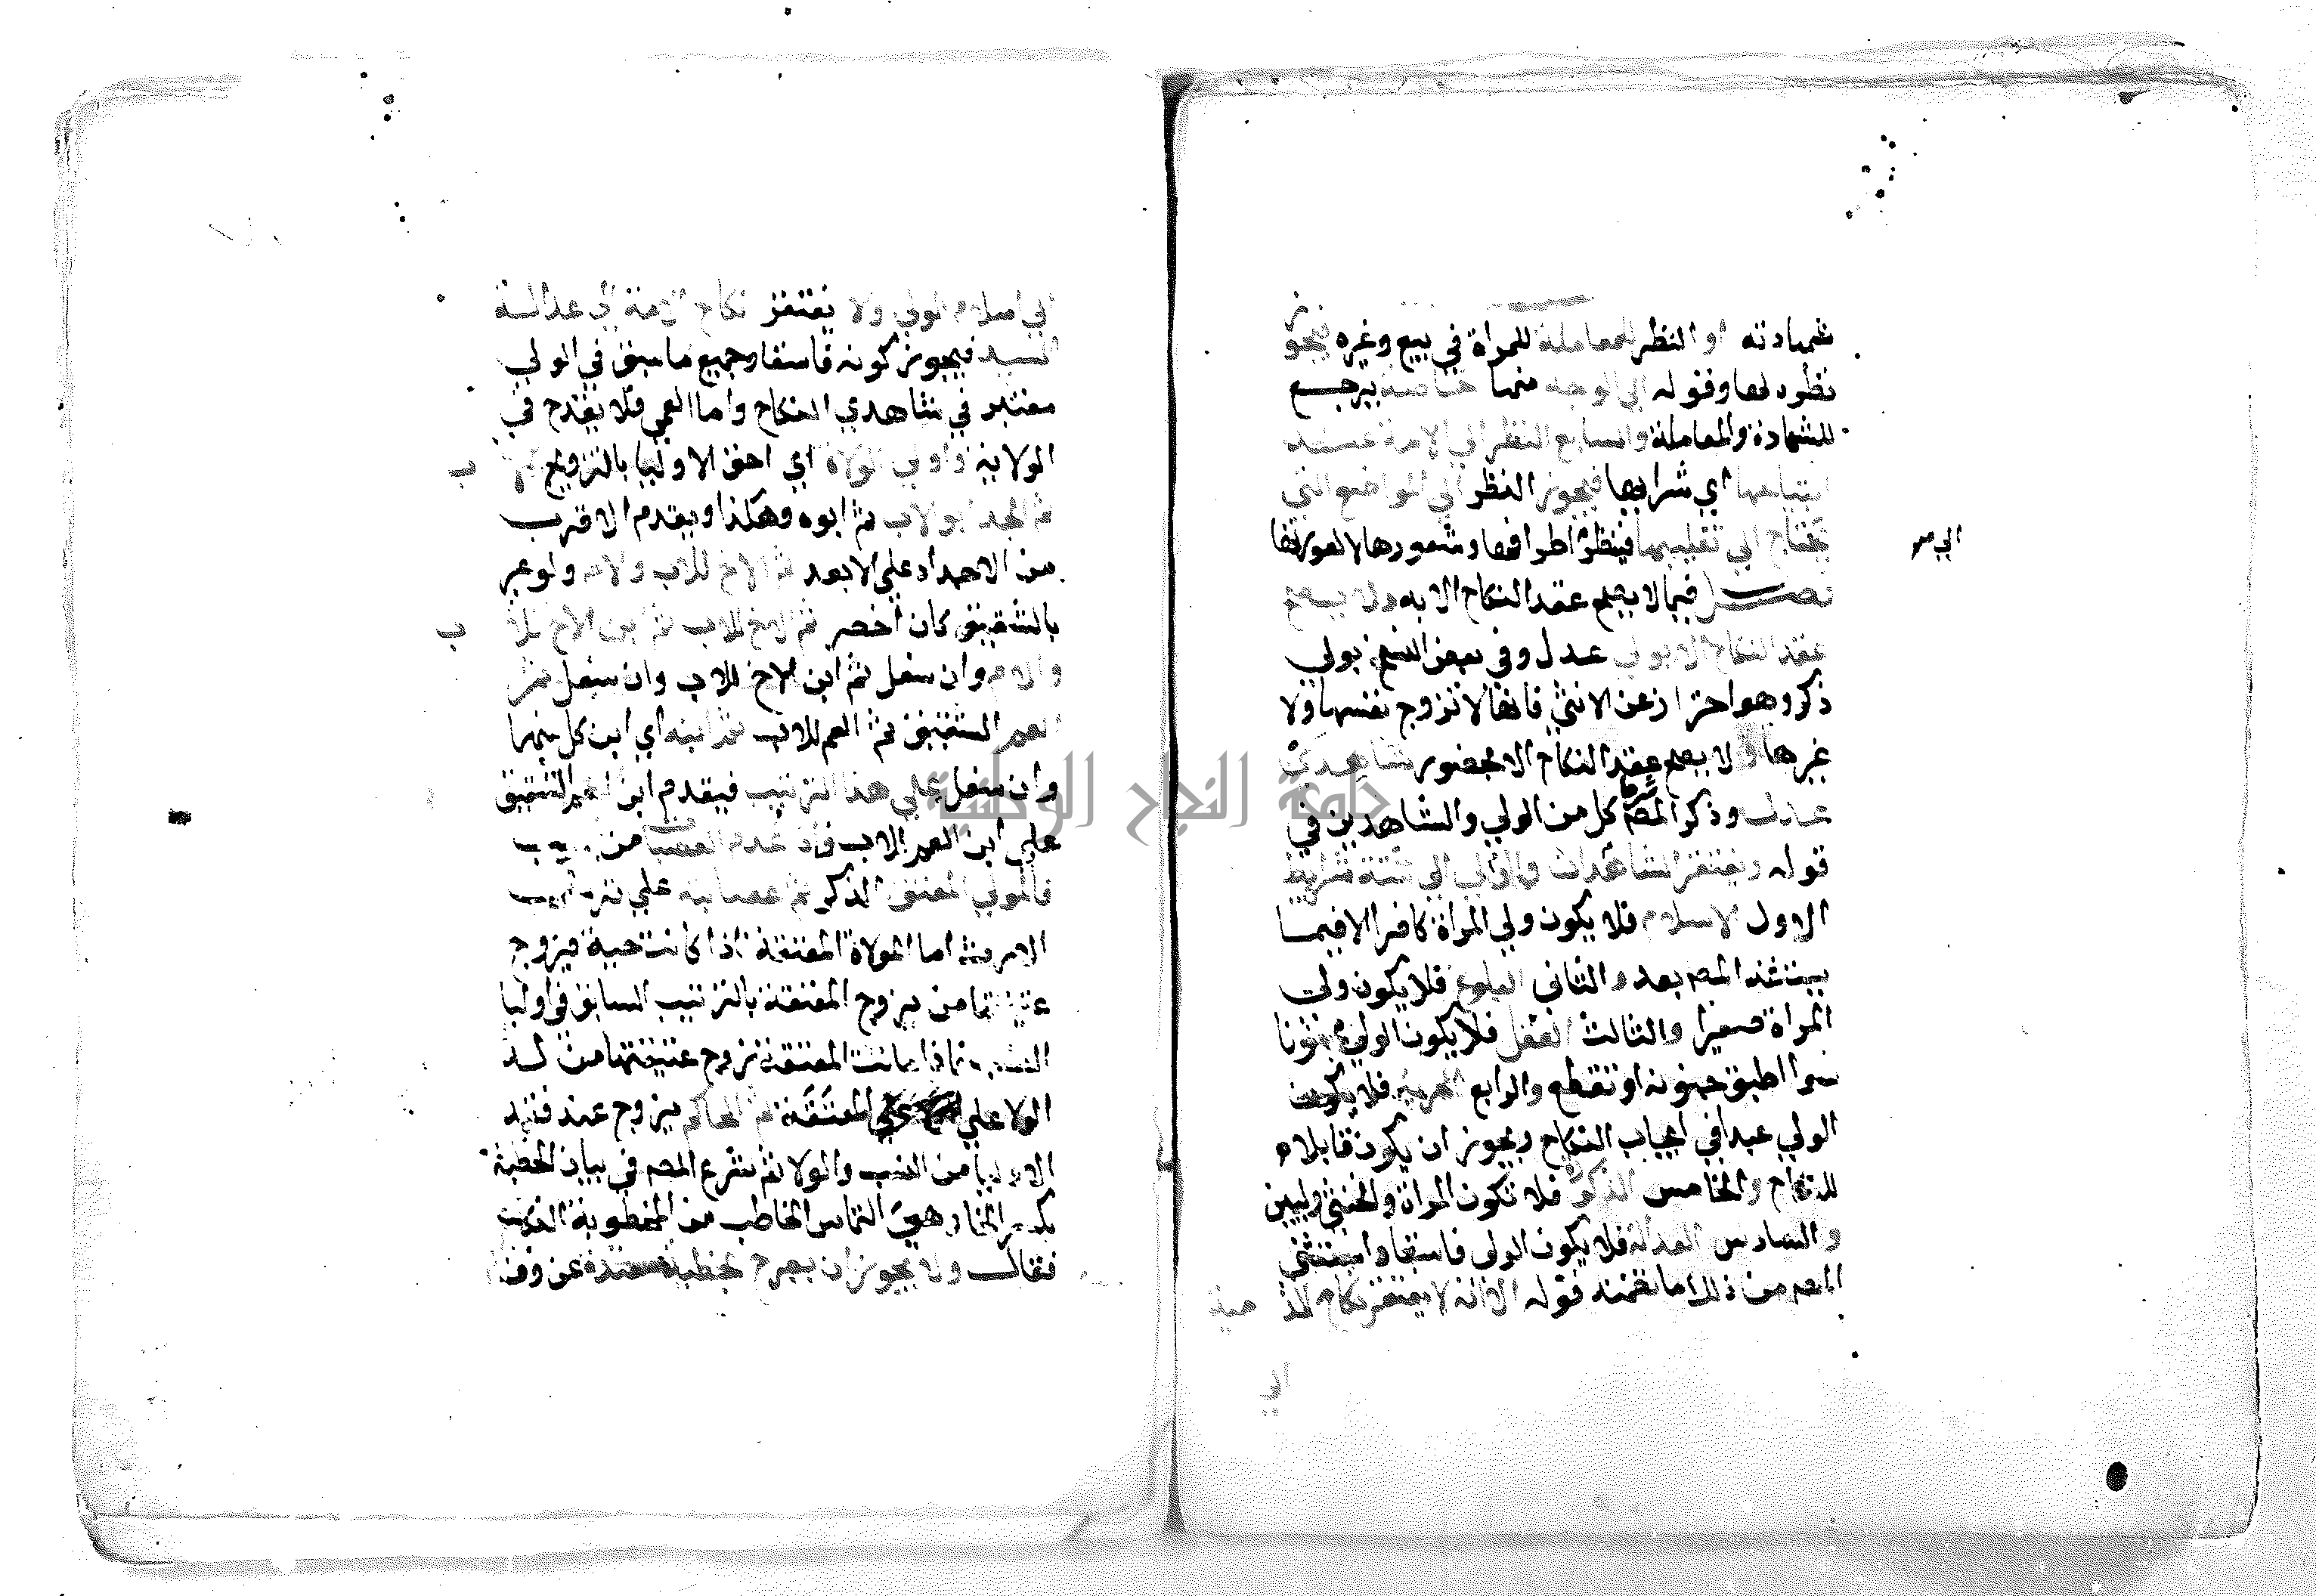 شهادته او النظر للمعاملة للمراة في بيع وغيره فيجوز
نظره لها وقوله الي الوجه منها خاصة يرجع
للشهادة والمعاملة والسابع النظر الي الامة عند
ابتياعها اي شرايها فيجوز النظر الي المواضع التي
يحتاج الي تقليبها فينظر اطرافها وشعورها لا عورتها
فصل فيما لا يصح عقد النكاح الا به ولا يصح
عقد النكاح الا بولي عدل وفي بعض النسخ بولي
ذكر وهو احتراز عن الانثي فانها لا تزوج نفسها ولا
غيرها ولا يصح عقد النكاح الا بحضور شاهدي
عدل وذكر المصم شرط كل من الولي والشاهدين في
قوله ويفتقر الشاهدان والولي الي ستة شرايط
الاول الاسلام فلا يكون ولي المراة كافرا الا فيما
يستثنه المصم بعد والثاني البلوغ فلا يكون ولي
المراة صغيرا والثالث العقل فلا يكون الولي مجنونا
سوا اطبق جنونه او تقطع والرابع الحرية فلا يكون
الولي عبدا في ايجاب النكاح ويجوز ان يكون قابلا
للنكاح والخامس الذكورة فلا تكون المراة والخنثي وليين
والسادس العدالة فلا يكون الولي فاسقا واستثني
المصم من ذلك ما تضمنه قوله الا انه لا يفتقر نكاح الذمية
الي
الي اسلام الولي ولا يفتقر نكاح الامة الي عدالة
السيد فيجوز كونه فاسقا وجميع ما سبق في الولي
معتبر في شاهدي النكاح واما العمي فلا يقدح في
الولاية واولي الولاة اي احق الاوليا بالتزويج
ثم الجد ابو الاب ثم ابوه وهكذا ويقدم الاقرب
من الاجداد علي الابعد ثم الاخ للاب والام ولو عبر
بالشقيق كان اخصر ثم الاخ للاب ثم ابن الاخ للاب
والام وان سفل ثم ابن الاخ للاب وان سفل ثم
العم الشقيق ثم العم للاب ثم ابنه اي ابن كل منهما
وان سفل علي هذا الترتيب فيقدم ابن العم الشقيق
علي ابن العم للاب فاذا عدم العصبات من
فالمولي المعتق الذكر ثم عصباته علي ترتيب
الارث اما المولاة المعتقة اذا كانت حية فيزوج
عتيقتها من يزوج المعتقة بالترتيب السابق في اوليا
النسب فاذا ماتت المعتقة زوج عتيقتها من له
الولا علي المعتقة ثم الحاكم يزوج عند فقد
الاوليا من النسب والولا ثم شرع المصم في بيان الخطبة
بكسر الخا وهي التماس الخاطب من المخطوبة النكاح
فقال ولا يجوز ان يصرح بخطبة معتدة عن وفاة